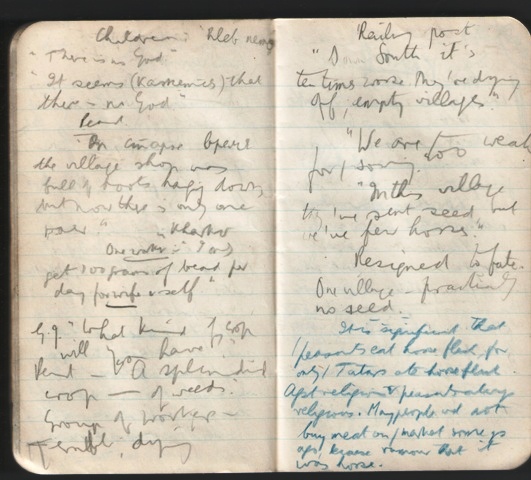 Children:
"There is no God"
"It seems (Kamenius) that
there – no God"
Peasant
the village shop was
full of boots hanging down,
but now there is only one
pair" Kharkov
One worker: "I only
get 200 grams of bread per
day for wife & self."
G.J. "What kind of crop
will you have?"
Peasant – "A splendid
crop – of weeds."
Group of workers –
Terrible, dying
Railway post
South it's
ten times worse. They're dying
off, empty villages."
"We are too weak
for sowing.
"In this village
they've sent seed but
we've few horses."
Resigned to fate.
One village – practically
no seed.
It is significant that
peasants eat horse flesh, for
only Tatars ate horseflesh.
Agst religion & peasants always
religious. Many people wd not
buy meat on market some yrs
ago, because rumour that it
was horse.